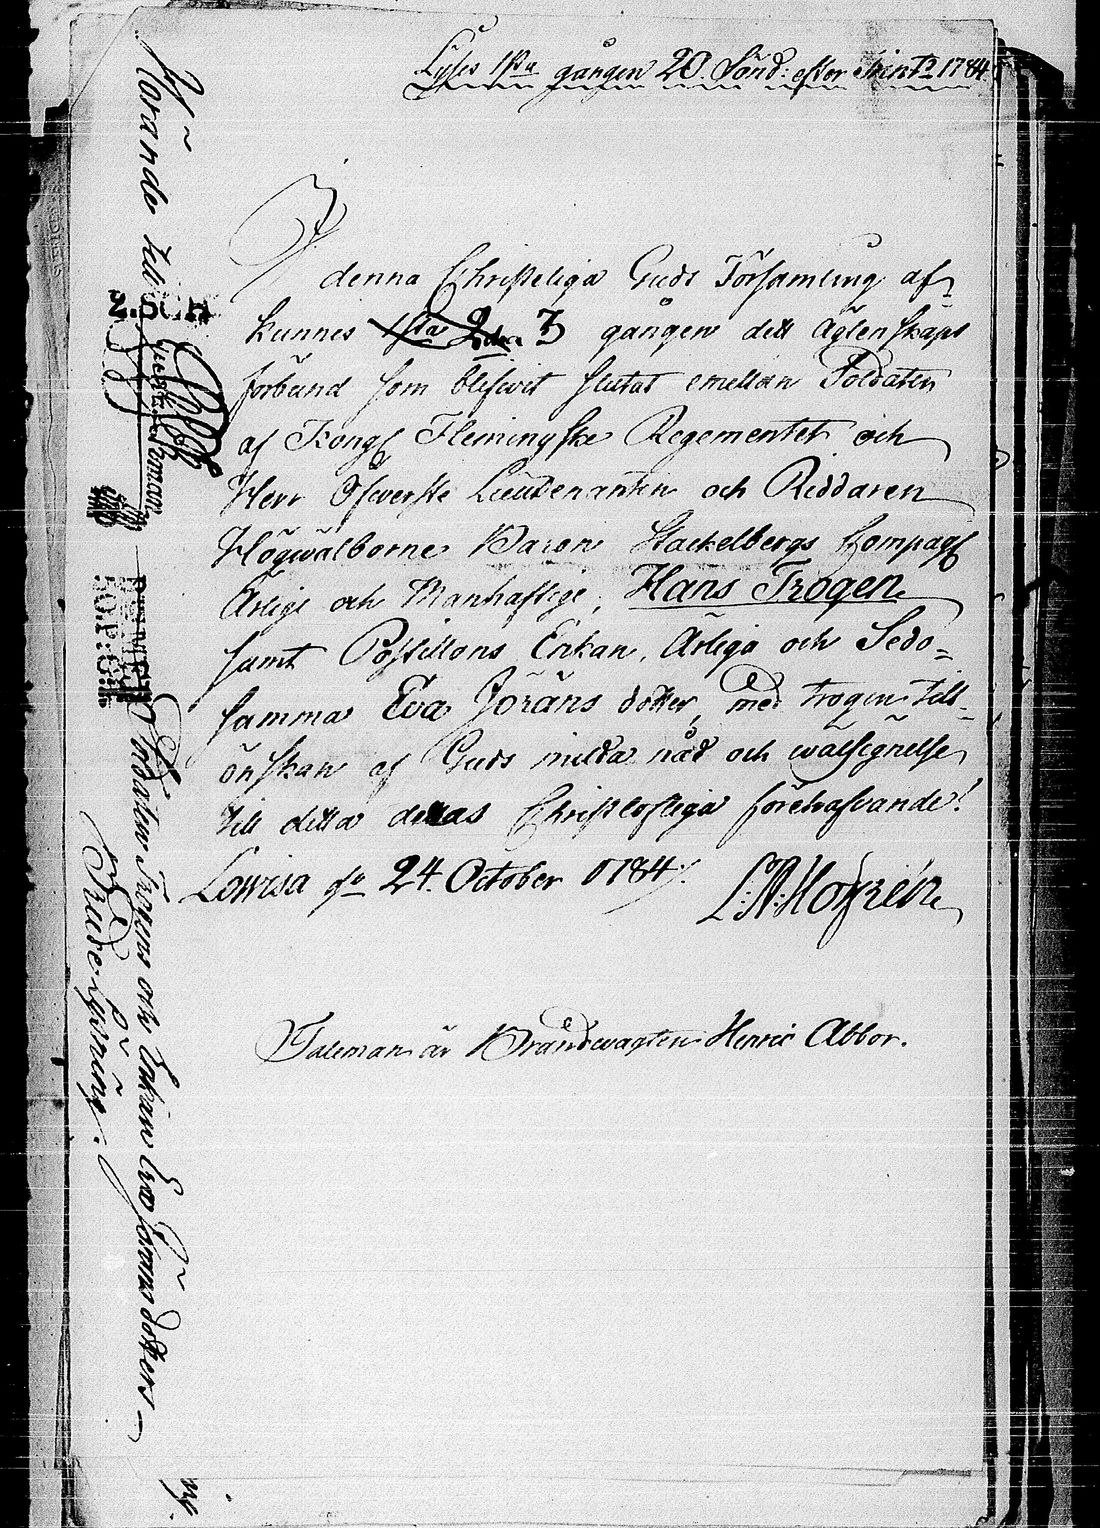 Lyses 1sta gången 20. Sönd: efter Trint: 1784
I denna Christeliga Guds Församling af-
kunnes 1sta 2dra 3 gången dett Ägtenskaps
förbund som blifwit slutat emellan Soldaten
af Kongl Flemingske Regementet och
Herr Öfwerste Lieutenanten och Riddaren
Högwälborne Baron Stackelbergs Compagn
Ärlige och Manhaftige, Hans Trogen
samt Postillons Enkan, Ärliga och Sedo-
samma Eva Jörans dotter, med trogen till-
önskan af Guds milda nåd och wälsignelse
till detta deras Christlofliga förehafvande!
Lowisa de 24. October 1784.
Taleman är Brandwagten Henric Abbor.
Hörande till
Soldaten Trogens och Enkan Eva Jörans dotters
Brude Lysning.